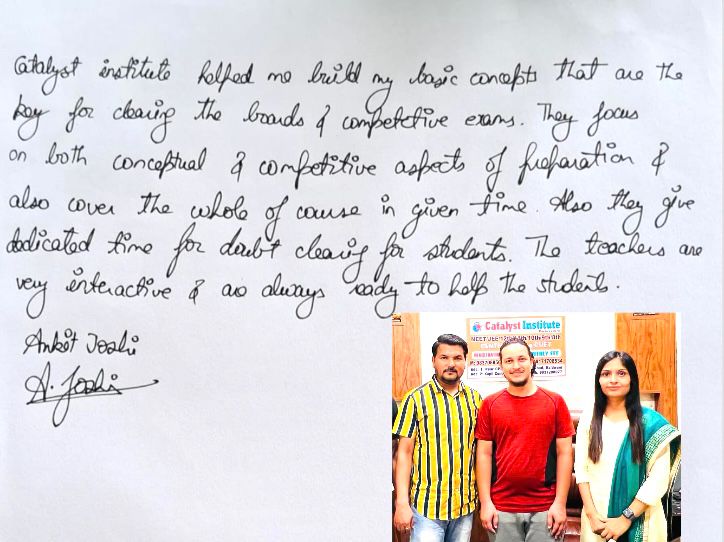 Catalyst institute helped me build my basic concepts that are the
key for clearing the boards & competetive exams. They focus
on both conceptual & competitive aspects of preparation &
also cover the whole of course in given time. Also they give
dedicated time for doubt clearing for students. The teachers are
very interactive & are always ready to help the students.
Ankit Joshi
A. Joshi
Catalyst Institute